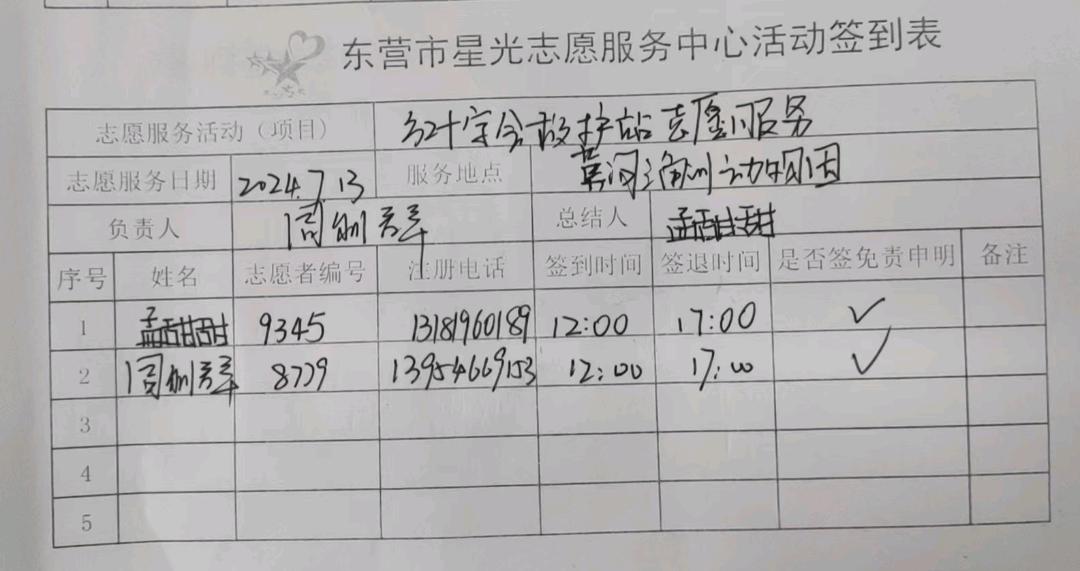 东营市星光志愿服务中心活动签到表
志愿服务活动（项目） 红十字会救护站志愿服务
志愿服务日期 2024.7.13 服务地点 黄河三角洲动物园
负责人 周 总结人 孟甜甜
序号 姓名 志愿者编号 注册电话 签到时间 签退时间 是否签免责申明 备注
1 孟甜甜 9345 13181960189 12:00 17:00 ✓
2 周 8779 13954669153 12:00 17:00 ✓
3
4
5